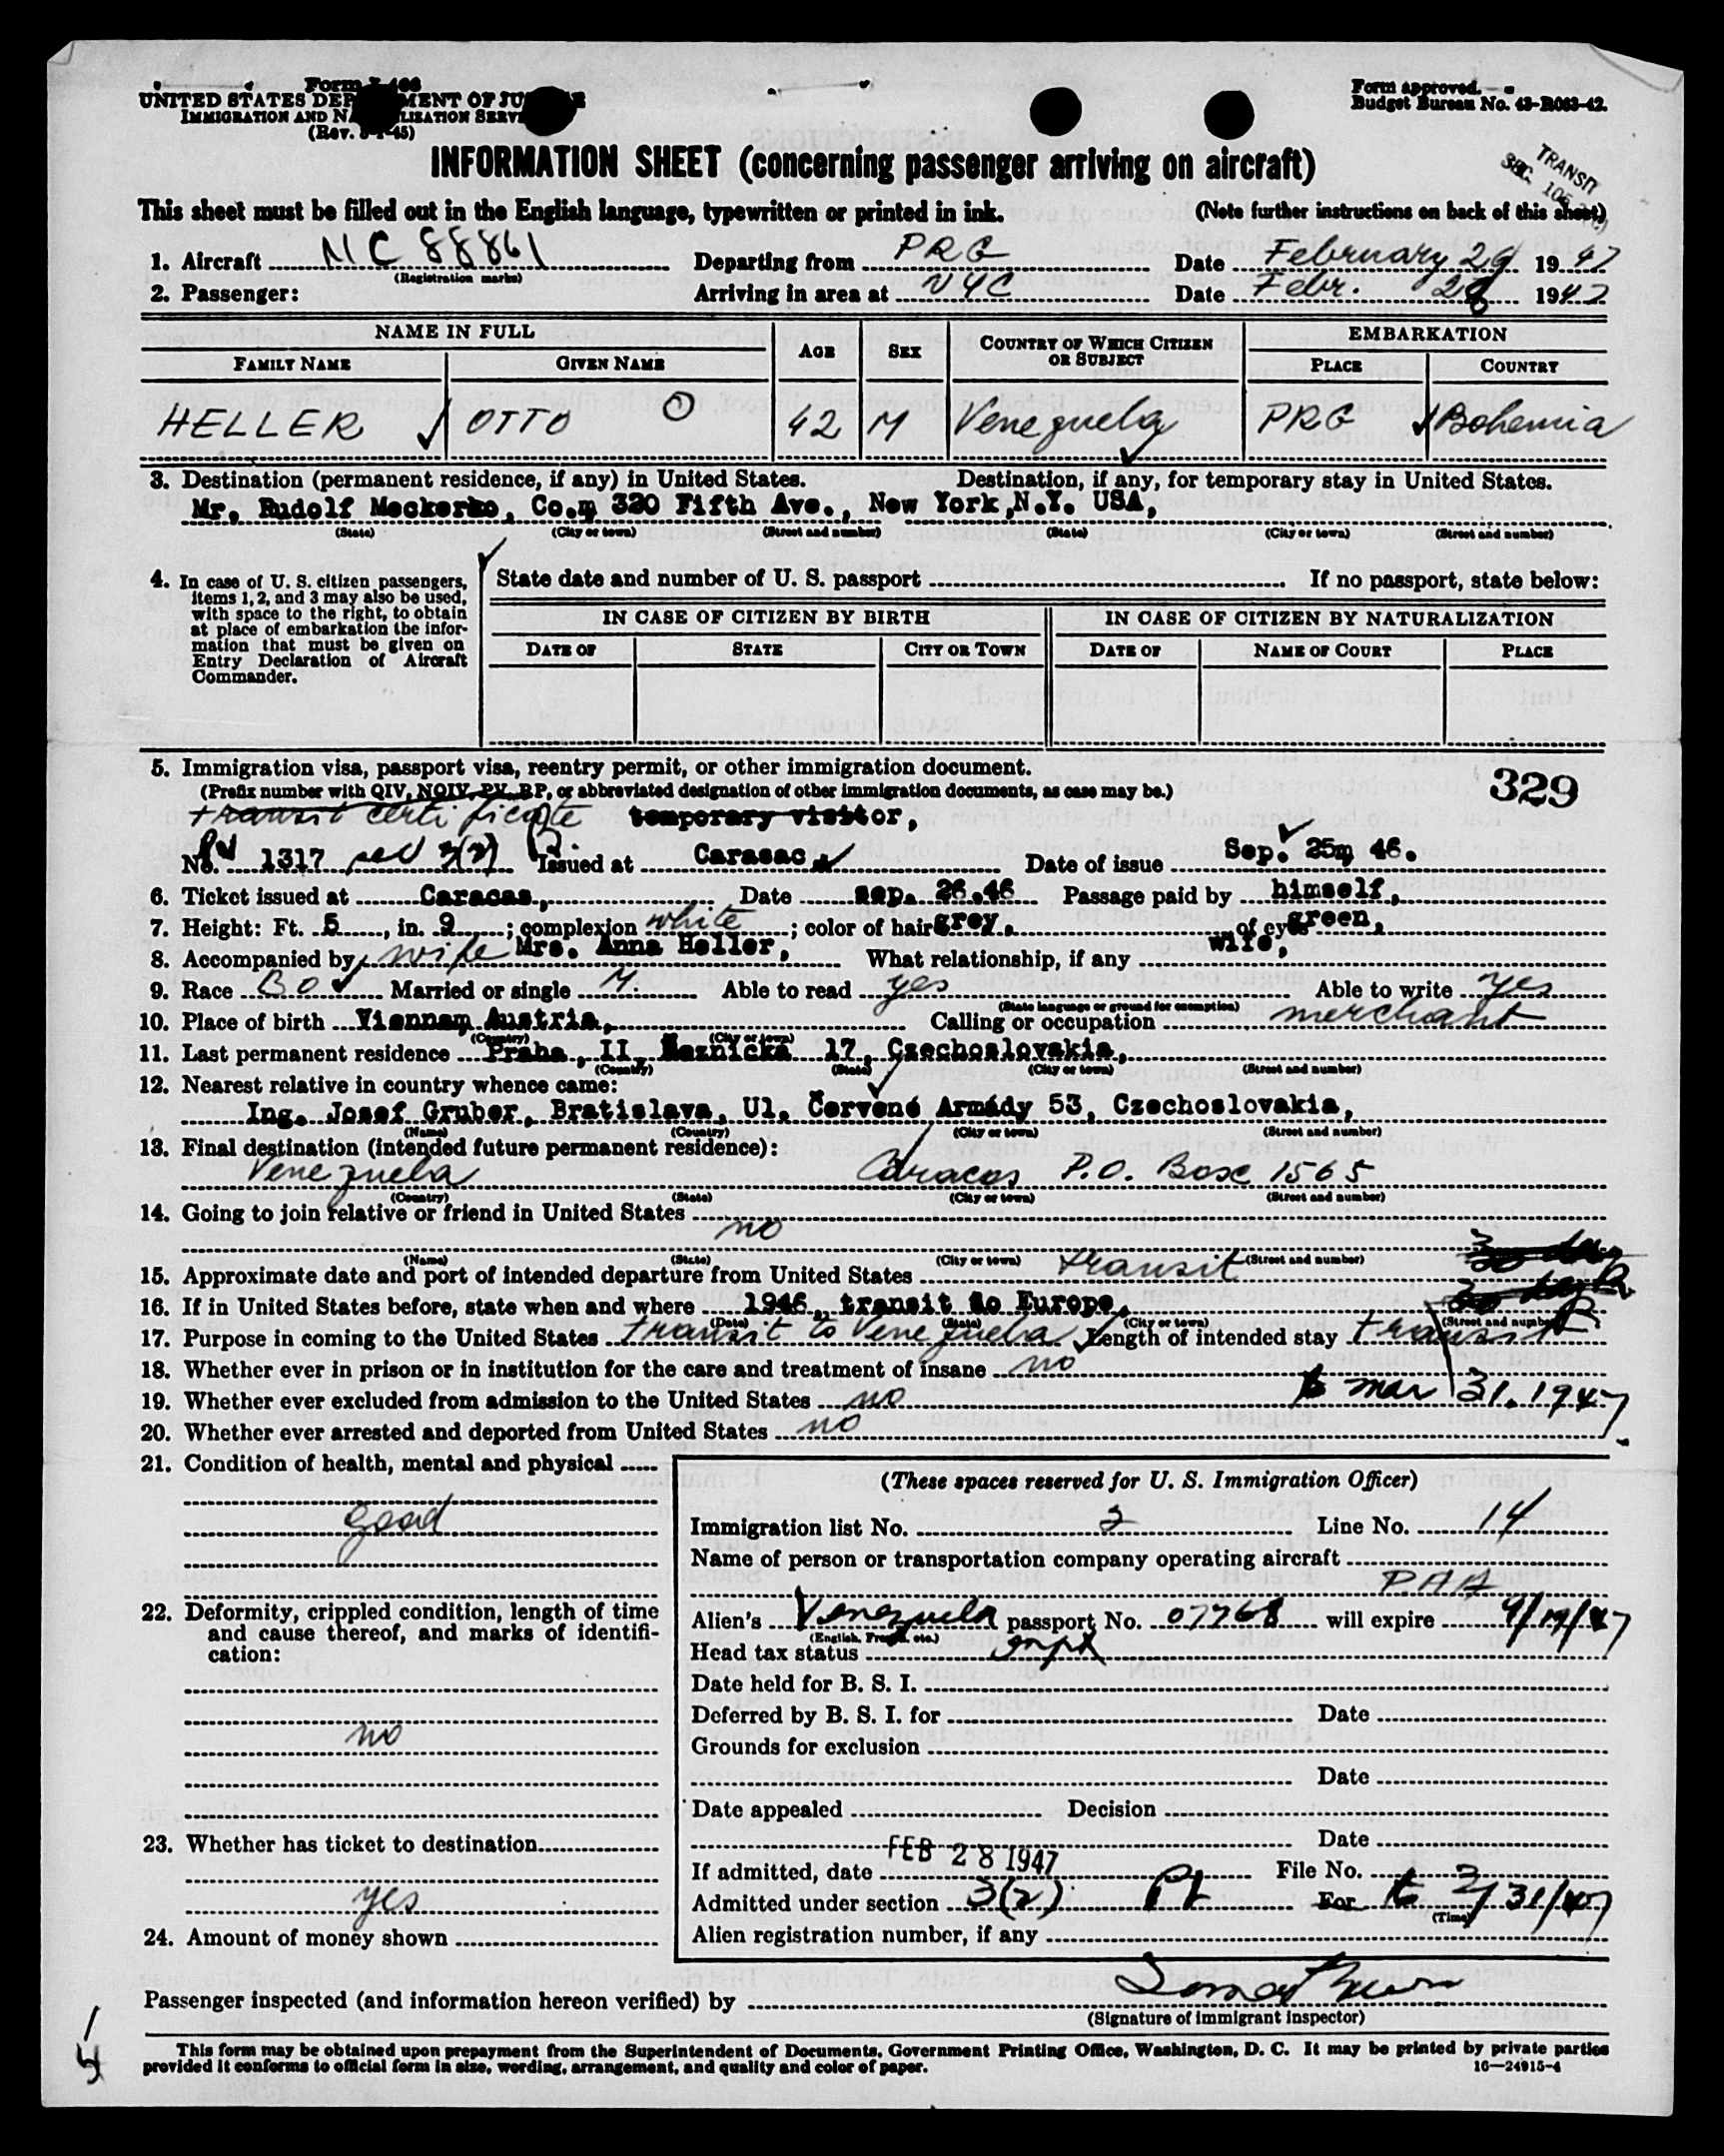 Form I-466
UNITED STATES DEPARTMENT OF JUSTICE
IMMIGRATION AND NATURALIZATION SERVICE
(Rev. 5-1-45)
Form approved.
Budget Bureau No. 43-R063-42.
INFORMATION SHEET (concerning passenger arriving on aircraft)
TRANSIT
SEC. 105
This sheet must be filled out in the English language, typewritten or printed in ink. (Note further instructions on back of this sheet)
1. Aircraft NC 88861 Departing from PRG Date February 1947
(Registration marks)
2. Passenger: Arriving in area at NYC Date Febr. 1947
NAME IN FULL AGE SEX COUNTRY OF WHICH CITIZEN OR SUBJECT EMBARKATION
FAMILY NAME GIVEN NAME PLACE COUNTRY
HELLER OTTO O 42 M Venezuela PRG Bohemia
3. Destination (permanent residence, if any) in United States. Destination, if any, for temporary stay in United States.
Mr. Rudolf Co., 320 Fifth Ave., New York, N.Y. USA,
(State) (City or town) (Street and number) (State) (City or town) (Street and number)
4. In case of U. S. citizen passengers, items 1, 2, and 3 may also be used, with space to the right, to obtain at place of embarkation the information that must be given on Entry Declaration of Aircraft Commander.
State date and number of U. S. passport If no passport, state below:
IN CASE OF CITIZEN BY BIRTH IN CASE OF CITIZEN BY NATURALIZATION
DATE OF STATE CITY OR TOWN DATE OF NAME OF COURT PLACE
5. Immigration visa, passport visa, reentry permit, or other immigration document.
329
(Prefix number with QIV, NQIV, PV, RP, or abbreviated designation of other immigration documents, as case may be.)
transit certificate temporary visitor,
No. PV 1317 sec 3(2) Issued at Carasac Date of issue Sep. 25, 46.
6. Ticket issued at Caracas, Date sep. 26.46 Passage paid by himself,
7. Height: Ft. 5, in. 9; complexion white; color of hair grey, of eyes green,
8. Accompanied by wife Mrs. Anna Heller, What relationship, if any wife,
9. Race BO Married or single M. Able to read yes Able to write yes
(State language or ground for exemption)
10. Place of birth Vienna, Austria, Calling or occupation merchant
(Country) (City or town)
11. Last permanent residence Praha, II, Řeznická 17, Czechoslovakia,
(Country) (State) (City or town) (Street and number)
12. Nearest relative in country whence came:
Ing. Josef Gruber, Bratislava, Ul. Červené Armády 53, Czechoslovakia,
(Name) (Country) (City or town) (Street and number)
13. Final destination (intended future permanent residence):
Venezuela Caracas P.O. Box 1565
(Country) (State) (City or town) (Street and number)
14. Going to join relative or friend in United States
no
(Name) (State) (City or town) (Street and number)
15. Approximate date and port of intended departure from United States transit
16. If in United States before, state when and where 1946, transit to Europe,
(Date) (State) (City or town) (Street and number)
17. Purpose in coming to the United States transit to Venezuela Length of intended stay transit
18. Whether ever in prison or in institution for the care and treatment of insane no
19. Whether ever excluded from admission to the United States no to mar 31. 1947
20. Whether ever arrested and deported from United States no
21. Condition of health, mental and physical
good
22. Deformity, crippled condition, length of time and cause thereof, and marks of identification:
no
23. Whether has ticket to destination
yes
24. Amount of money shown
(These spaces reserved for U. S. Immigration Officer)
Immigration list No. 2 Line No. 14
Name of person or transportation company operating aircraft
PAA
Alien's Venezuela passport No. 07768 will expire 9/19/47
(English, French, etc.)
Head tax status
Date held for B. S. I.
Deferred by B. S. I. for Date
Grounds for exclusion
Date
Date appealed Decision
Date
If admitted, date FEB 28 1947 File No.
Admitted under section 3(2) For to 3/31/47
(Time)
Alien registration number, if any
Passenger inspected (and information hereon verified) by
(Signature of immigrant inspector)
This form may be obtained upon prepayment from the Superintendent of Documents, Government Printing Office, Washington, D. C. It may be printed by private parties
provided it conforms to official form in size, wording, arrangement, and quality and color of paper.
16—24915-4